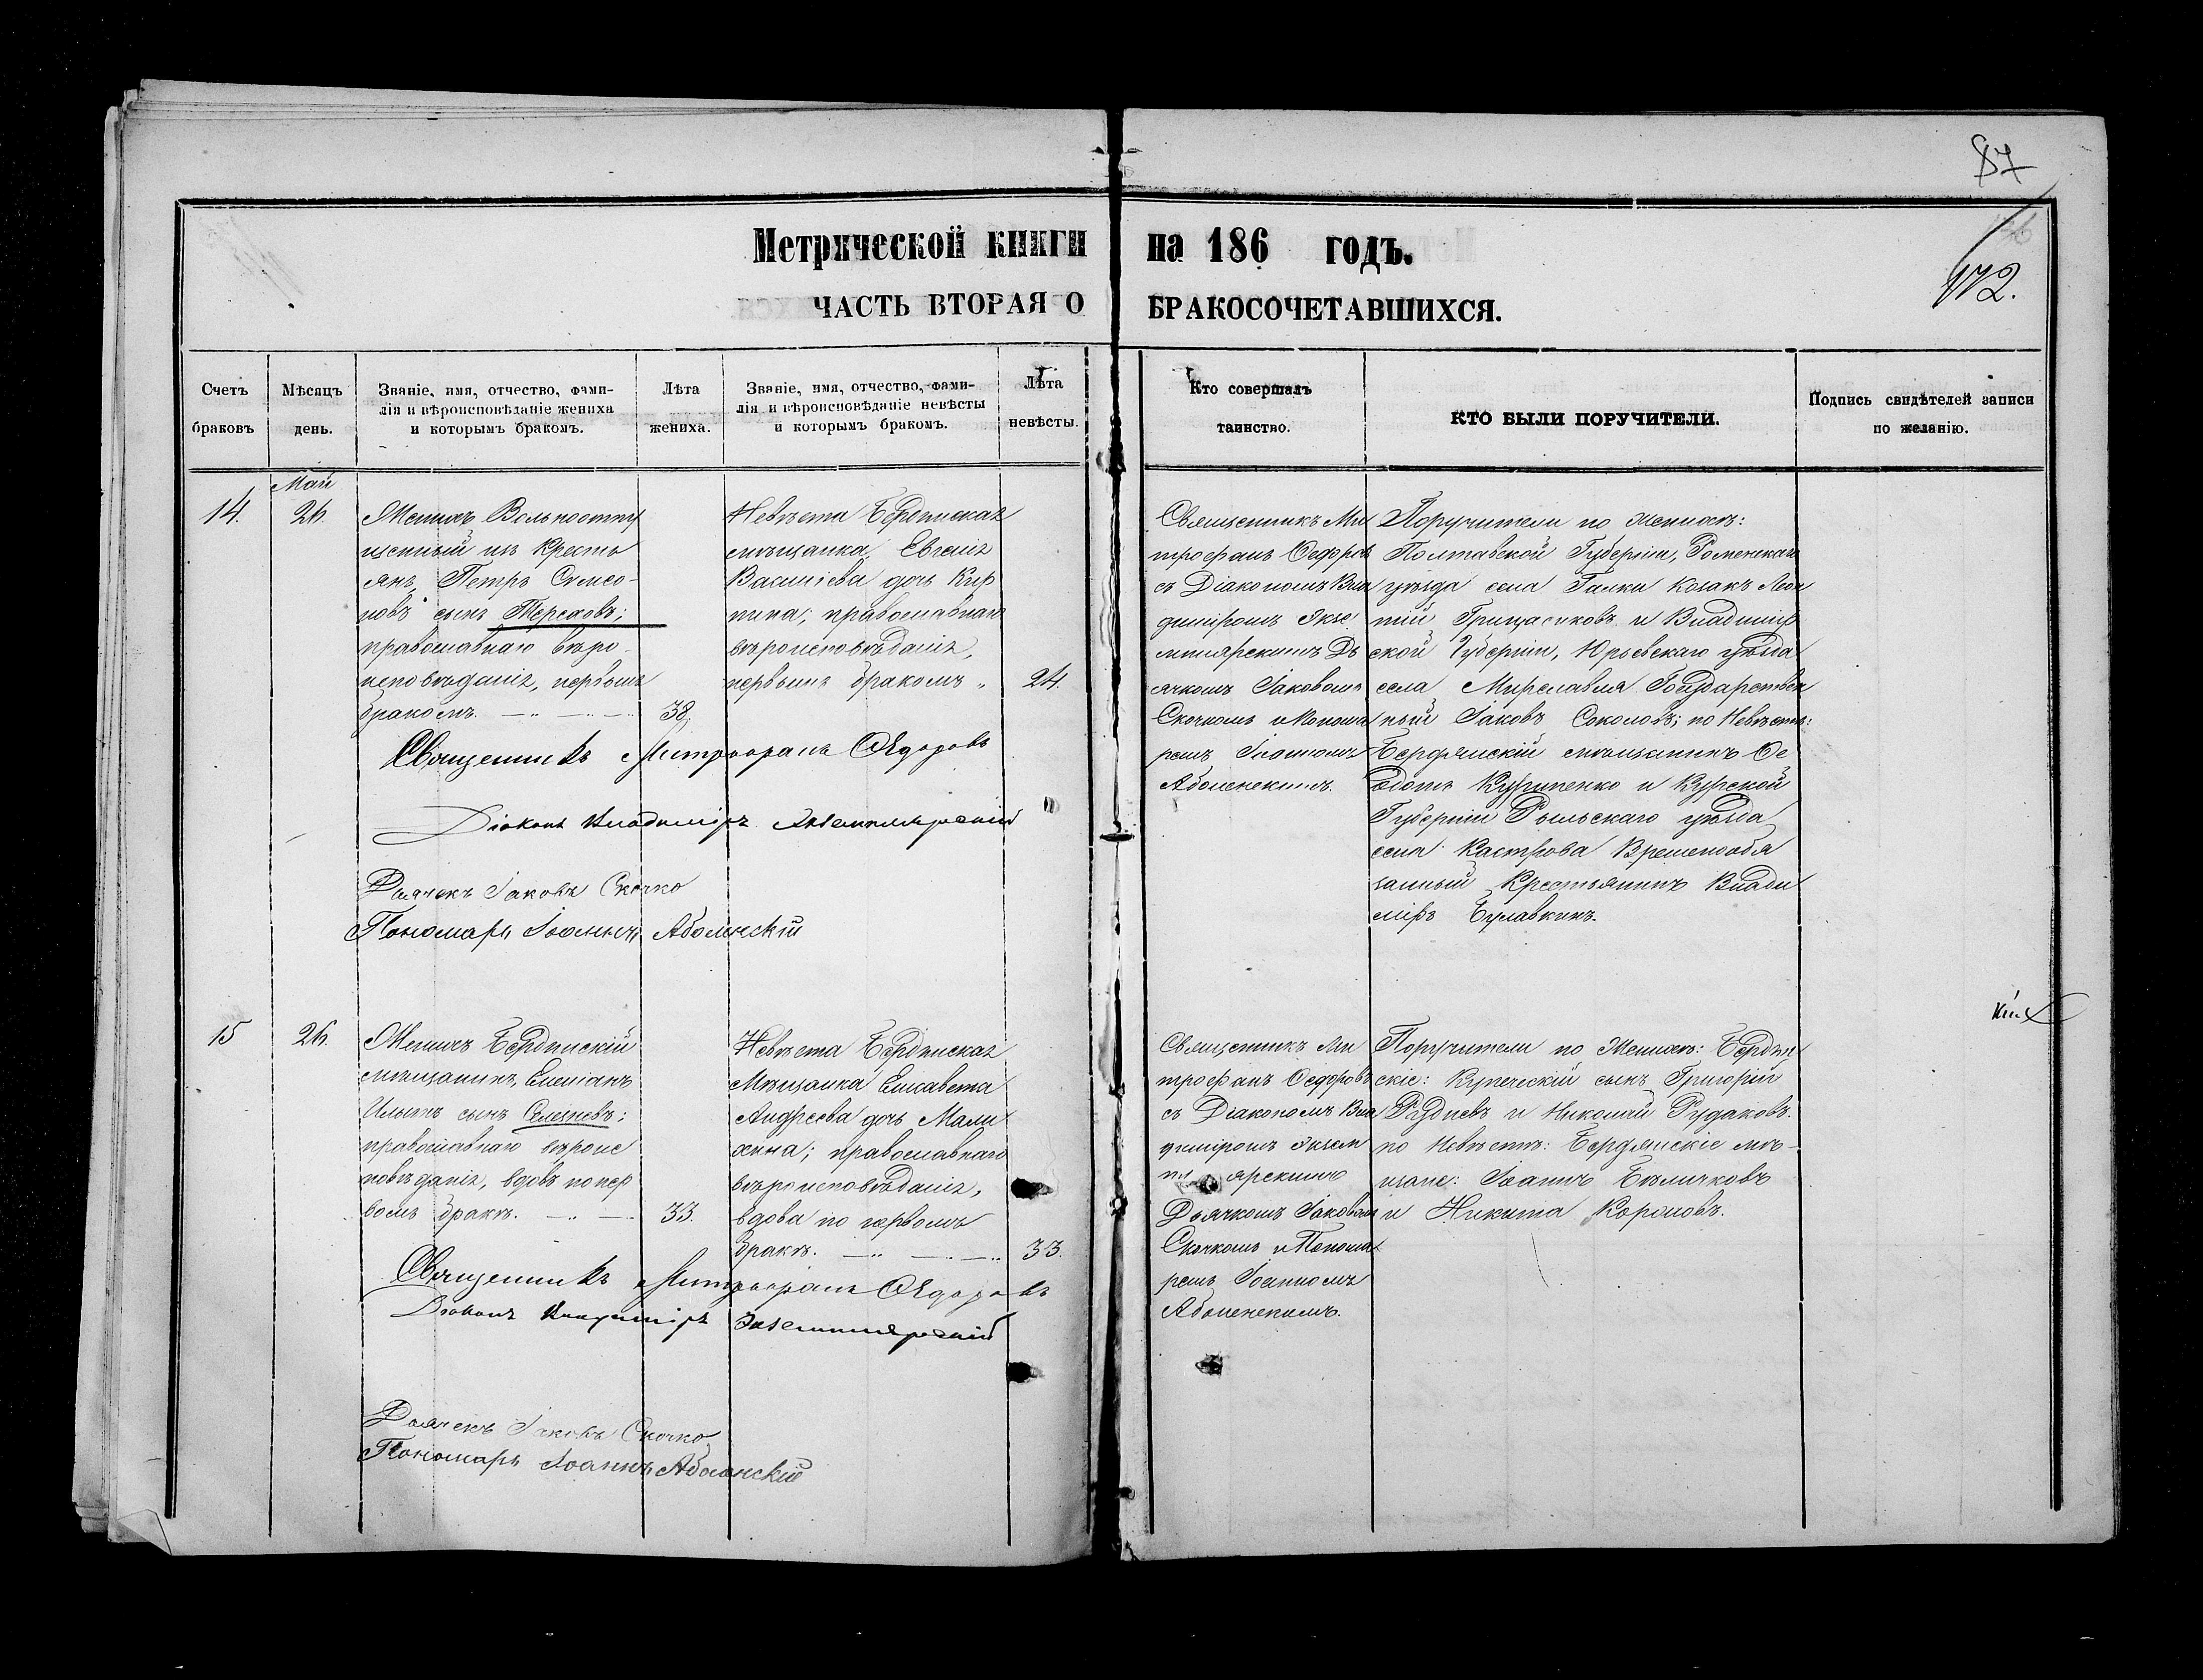 87
172.
Метрической книги на 186 годъ.
ЧАСТЬ ВТОРАЯ О БРАКОСОЧЕТАВШИХСЯ.
Счетъ браковъ
Мѣсяцъ день.
Званіе, имя, отчество, фами-
лія и вѣроисповѣданіе жениха
и которымъ бракомъ.
Лѣта жениха.
Званіе, имя, отчество, фами-
лія и вѣроисповѣданіе невѣсты
и которымъ бракомъ.
Лѣта невѣсты.
Кто совершалъ таинство.
КТО БЫЛИ ПОРУЧИТЕЛИ.
Подпись свидѣтелей записи
по желанію.
14.
Май
26.
Женихъ Вольноотпу
щенный изъ Кресть
янъ, Петръ Симео-
новъ сынъ Тереховъ;
православнаго вѣро-
исповѣданія, первымъ
бракомъ.
38.
Невѣста Бердянская
мѣщанка, Евгенія
Василіева дочь Кир
пина; православнаго
вѣроисповѣданія,
первымъ бракомъ
24.
Священникъ Ми
трофанъ Федоровъ
съ Діакономъ Вла
диміромъ Экзе
мплярскимъ Дь
ячкомъ Іаковомъ
Скочкомъ и Понома
ремъ Іоанномъ
Аболенскимъ.
Поручители по Женихѣ:
Полтавской Губерніи, Роменскаго
уѣзда села Галки Козакъ Леон
тій Грищасиковъ и Владимір
ской Губерніи, Юрьевскаго уѣзда
села Мирславля Государствен
ный Іаковъ Соколовъ; по Невѣстѣ:
Бердянскій мѣщанинъ Фе
дотъ Куриленко и Курской
Губерніи Рыльскаго уѣзда
села Кастрова Временнообя
занный Крестьянинъ Влади
міръ Булавкинъ.
Священникъ Митрофанъ Ѳедоровъ
Діаконъ Владиміръ Экземплярскій
Дьячекъ Іаковъ Скочко
Пономарь Іоаннъ Аболенскій
15
26.
Женихъ Бердянскій
мѣщанинъ, Емеліанъ
Ильинъ сынъ Селезневъ;
православнаго вѣроис
повѣданія, вдовъ по пер
вомъ бракѣ.
33.
Невѣста Бердянская
Мѣщанка Елисавета
Андреева дочь Мали
хина; православнаго
вѣроисповѣданія,
вдова по первомъ
бракѣ.
33.
Священникъ Ми
трофанъ Федоровъ
съ Діакономъ Вла
диміромъ Экзем
плярскимъ
Дьячкомъ Іаковомъ
Скочкомъ и Понома
ремъ Іоанномъ
Аболенскимъ.
Поручители по Женихѣ: Бердян
скіе: Купеческій сынъ Григорій
Рудневъ и Николай Рудаковъ.
по Невѣстѣ: Бердянскіе мѣ-
щане: Іоаннъ Бѣличковъ
и Никита Короновъ.
Священникъ Митрофанъ Ѳедоровъ
Діаконъ Владиміръ Экземплярскій
Дьячекъ Іаковъ Скочко
Пономарь Іоаннъ Аболенскій